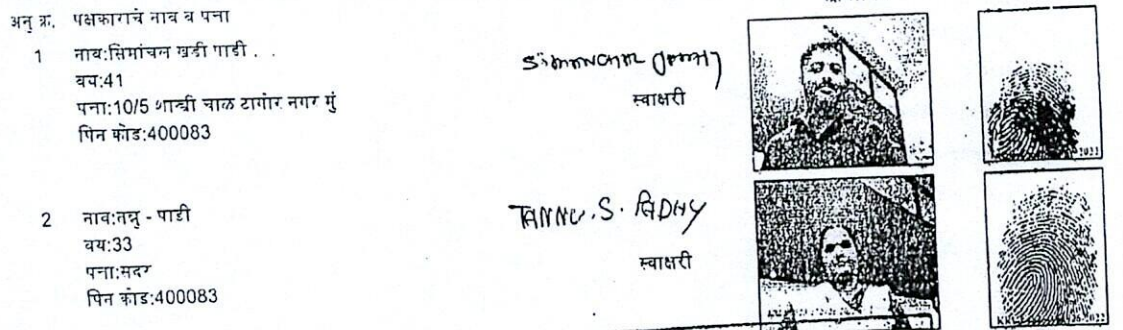 अनु क्र. पक्षकाराचे नाव व पत्ता
1 नाव:सिमांचल खडी पाडी . .
वय:41
पत्ता:10/5 शास्त्री चाळ टागोर नगर मुं
पिन कोड:400083
स्वाक्षरी
2022
2 नाव:तन्नु - पाडी
वय:33
पत्ता:सदर
पिन कोड:400083
TANNU.S. PADHY
स्वाक्षरी